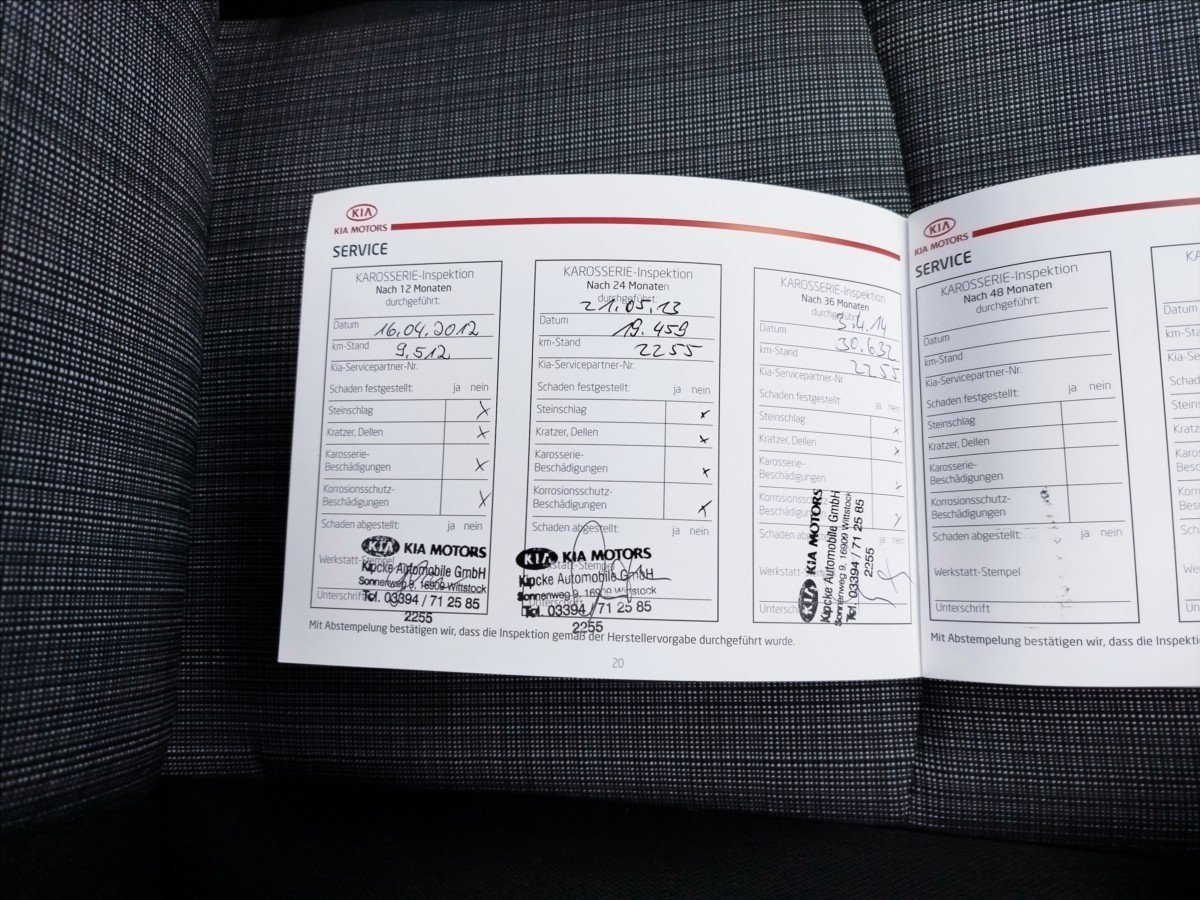 KIA
KIA MOTORS
SERVICE
KAROSSERIE-Inspektion
Nach 12 Monaten
durchgeführt:
Datum 16.04.2012
km-Stand 9.512
Kia-Servicepartner-Nr.
Schaden festgestellt: ja nein
Steinschlag x
Kratzer, Dellen x
Karosserie-
Beschädigungen x
Korrosionsschutz-
Beschädigungen x
Schaden abgestellt: ja nein
Werkstatt-Stempel
KIA KIA MOTORS
Kipcke Automobile GmbH
Sonnenweg 9, 16909 Wittstock
Tel. 03394 / 71 25 85
2255
Unterschrift
KAROSSERIE-Inspektion
Nach 24 Monaten
durchgeführt:
21.05.13
Datum 19.459
km-Stand 2255
Kia-Servicepartner-Nr.
Schaden festgestellt: ja nein
Steinschlag x
Kratzer, Dellen x
Karosserie-
Beschädigungen x
Korrosionsschutz-
Beschädigungen x
Schaden abgestellt: ja nein
Werkstatt-Stempel
KIA KIA MOTORS
Kipcke Automobile GmbH
Sonnenweg 9, 16909 Wittstock
Tel. 03394 / 71 25 85
2255
Unterschrift
KAROSSERIE-Inspektion
Nach 36 Monaten
durchgeführt:
3.4.14
Datum 30.632
km-Stand 2255
Kia-Servicepartner-Nr.
Schaden festgestellt: ja nein
Steinschlag x
Kratzer, Dellen x
Karosserie-
Beschädigungen x
Korrosionsschutz-
Beschädigungen x
Schaden abgestellt: ja nein
Werkstatt-
KIA KIA MOTORS
Kipcke Automobile GmbH
Sonnenweg 9, 16909 Wittstock
Tel. 03394 / 71 25 85
2255
Unterschrift
Mit Abstempelung bestätigen wir, dass die Inspektion gemäß der Herstellervorgabe durchgeführt wurde.
20
KIA
KIA MOTORS
SERVICE
KAROSSERIE-Inspektion
Nach 48 Monaten
durchgeführt:
Datum
km-Stand
Kia-Servicepartner-Nr.
Schaden festgestellt: ja nein
Steinschlag
Kratzer, Dellen
Karosserie-
Beschädigungen
Korrosionsschutz-
Beschädigungen
Schaden abgestellt: ja nein
Werkstatt-Stempel
Unterschrift
Mit Abstempelung bestätigen wir, dass die Inspekti
KA
Datum
km-Sta
Kia-Ser
Schade
Steinsc
Kratze
Karos
Besch
Korro
Besch
Scha
Werk
Unte